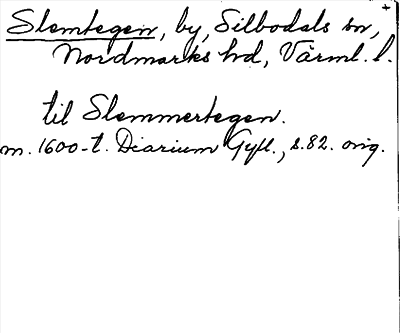 Slemtegen, by, Silbodals sn,
Nordmarks hd, Värml. l.
til Slemmertegen.
m. 1600-t. Diarium Gyll., s. 82. orig.